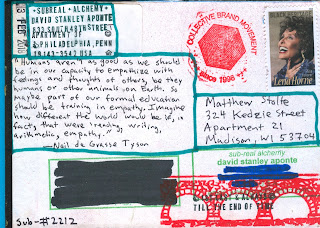 SUBREAL • ALCHEMY
DAVID STANLEY APONTE
APARTMENT OF
PHILADELPHIA, PENN
"Humans aren't as good as we should
be in our capacity to empathize with
feelings and thoughts of others, be they
humans or other animals on Earth. So
maybe part of our formal education
should be training in empathy. Imagine
how different the world would be if, in
fact, that were 'reading, writing,
arithmetic, empathy.'"
—Neil de Grasse Tyson
Sub-#2212
COLLECTIVE BRAND MOVEMENT
since 1998
Lena Horne
Matthew Stolte
324 Kedzie Street
Apartment 21
Madison, WI 53704
sub-real alchemy
david stanley aponte
TILL THE END OF